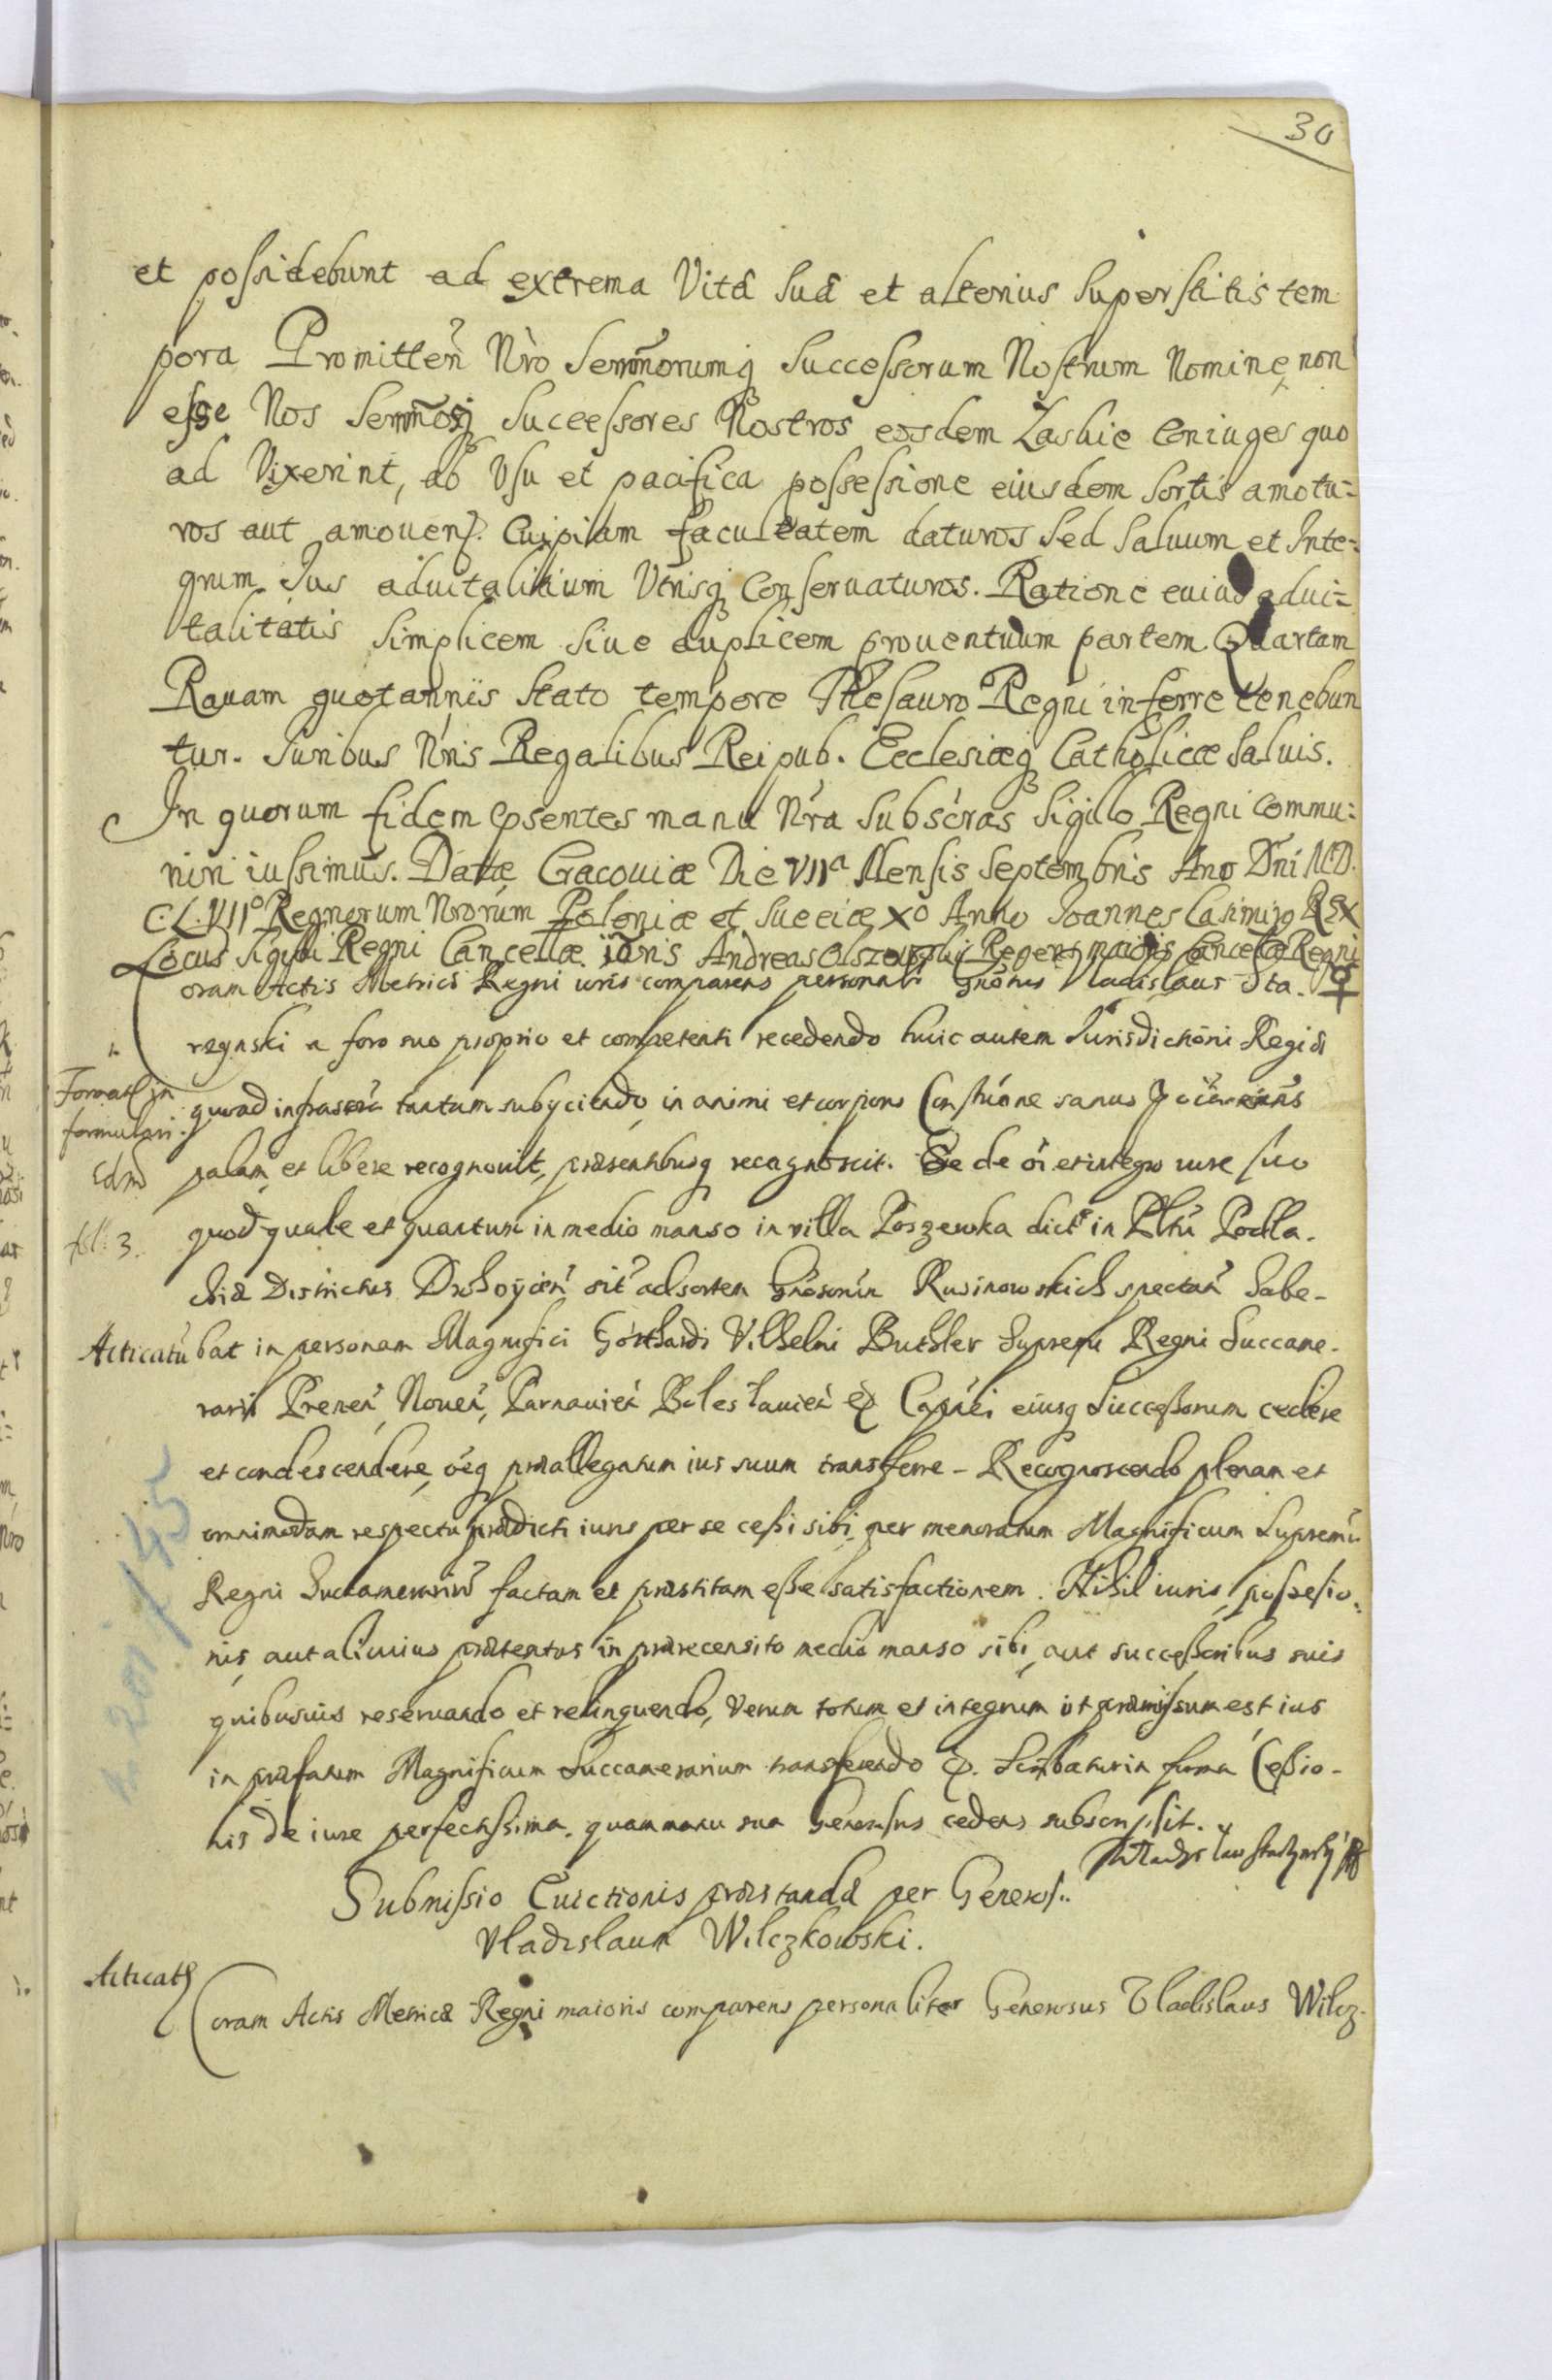 30
et possidebunt ad extrema Vitæ Suæ et alterius Superstitis tem
pora Promitten̄ Nr̀o Sermnorumq̃ Successorum Nostrum Nomine, non
esse Nos Sermnosq̃ Successores Nostros eosdem Laskie Coniuges quo
ad Vixerint, ab Vsu et pacifica possessione eiusdem Sortis amotu=
ros aut amouen̄. Cuipiam facultatem daturos Sed Saluum et Inte=
grum Ius aduitalitium Vtrisq̃ Conseruaturos. Ratione cuius adui=
talitatis Simplicem Siue duplicem prouentuum partem Quartam
Rauam quotannis Stato tempore Thesauro Regni inferre tenebun
tur. Iuribus Nr̃is Regalibus Reipub. Ecclesiæq̃ Catholicæ Saluis.
In quorum fidem Pn̄sentes manu Nr̃a Subscr̃as Sigillo Regni Commu=
niri iussimus. Datæ Cracouiæ Die VIIa Mensis Septembris Ano Dn̄i M.D.
C.L.VIIo Regnorum Nrorum Poloniæ et Sueciæ Xo Anno Joannes Casimirg REX
Locus Sigilli Regni Cancellæ Andreas Olszowski Regens maioris Cancellæ Regni
Coram Actis Metrices Regni comparens personalr̃ Gn̄osus Vladislaus Sta.
rzynski a foro suo proprio et competenti recedendo huic autem Iurisdictioni Regiæ
Format in
formulari:
quoad infrascr̃a tantum subyciendo, in animi et corporis Constitōne sanus
palam et libere recognouit, præsentibusq̃ recognoscit. Se de oī et integro iure suo
fol: 3.
quod quale et quantum in medio manso in villa Poszewka dict̃ in Pltũ Podla.
chiæ Districtus Drohoÿcien̄ sit̃ ad sortem Gn̄osorum Rusinowskich spectan̄ habe-
Acticatũ
bat in personam Magnifici Gotthardi Vilhelmi Buthler Supremi Regni Succame-
rarii Prenen̄, Nouen̄, Parnauien̄ Boleslauien̄ & Capn̄ei eiusq̃ Successorum cedere
et condescendere, oēq̃ præallegatum ius suum transferre - Recognoscendo plenam et
omnimodam respectu prædicti iuris per se cessi sibi per memoratum Magnificum Supremũ
Regni Succamerariũ factam et præstitam esse satisfactionem. Nihil iuris, possessio.
nis, aut alicuius prætextus in prærecensito medio manso sibi, aut successoribus suis
quibusuis reseruando et relinquendo, Verum totum et integrum ut præmissum est ius
in præfatum Magnificum Succamerarium transferendo &. Scribatur in forma Cessio-
nis de iure perfectissima. quam manu sua Generosus cedens subscripsit.
Submissio Euictionis præstandæ per Generos.
Vladislaum Wilczkowski.
Acticatũ
Coram Actis Metricæ Regni maioris comparens personaliter Generosus Vladislaus Wilcz-